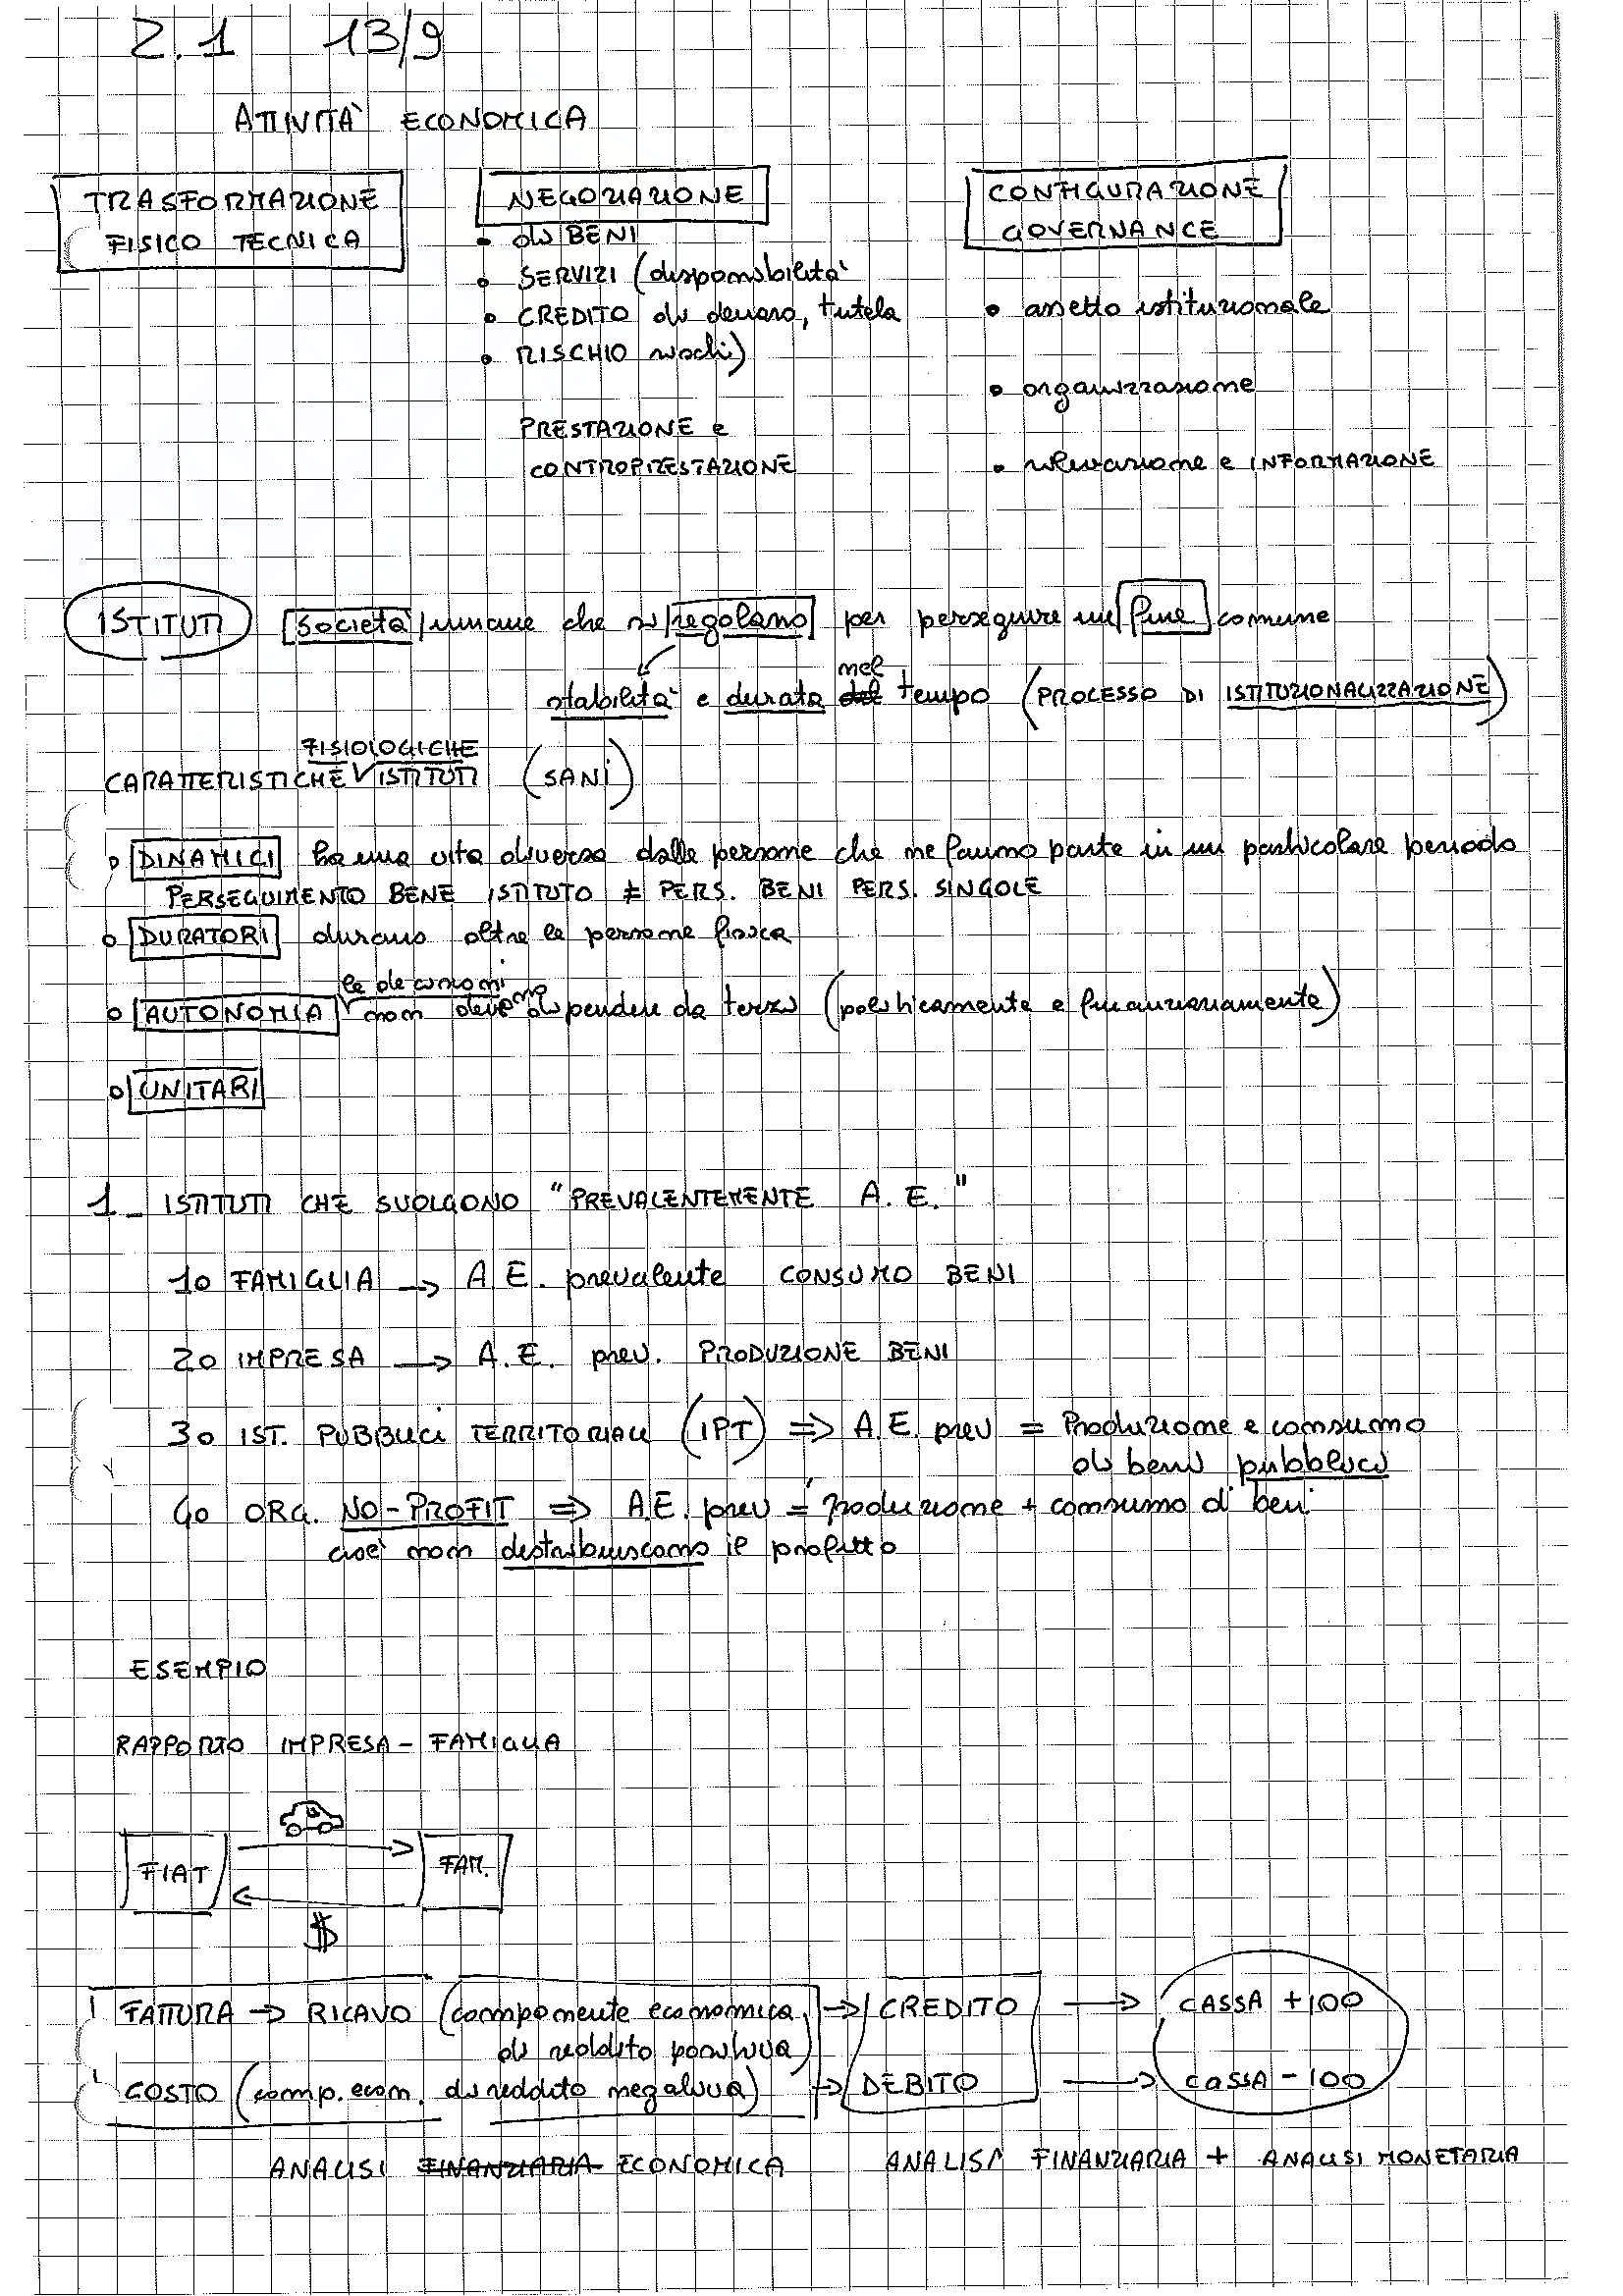 2.1 13/9
ATTIVITÀ ECONOMICA
TRASFORMAZIONE
FISICO TECNICA
NEGOZIAZIONE
• di BENI
• SERVIZI (disponibilità
• CREDITO di denaro, tutela
• RISCHIO rischi)
PRESTAZIONE e
CONTROPRESTAZIONE
CONFIGURAZIONE
GOVERNANCE
• assetto istituzionale
• organizzazione
• rilevazione e INFORMAZIONE
ISTITUTI società umane che si regolano per perseguire un fine comune
nel
stabilità e durata del tempo (PROCESSO DI ISTITUZIONALIZZAZIONE)
FISIOLOGICHE
CARATTERISTICHE ISTITUTI (SANI)
o DINAMICI ha una vita diversa dalle persone che ne fanno parte in un particolare periodo
PERSEGUIMENTO BENE ISTITUTO ≠ PERS. BENI PERS. SINGOLE
o DURATORI durano oltre le persone fisica
le decisioni
o AUTONOMIA non devono dipendere da terzi (politicamente e finanziariamente)
o UNITARI
1_ ISTITUTI CHE SVOLGONO "PREVALENTEMENTE A.E."
1o FAMIGLIA → A.E. prevalente CONSUMO BENI
2o IMPRESA → A.E. prev. PRODUZIONE BENI
3o IST. PUBBLICI TERRITORIALI (IPT) ⇒ A.E. prev = Produzione e consumo
di beni pubblici
4o ORG. NO-PROFIT ⇒ A.E. prev = produzione + consumo di beni
cioè non distribuiscono il profitto
ESEMPIO
RAPPORTO IMPRESA - FAMIGLIA
FIAT
FAM.
$
FATTURA → RICAVO (componente economica → CREDITO → CASSA +100
di reddito positiva)
COSTO (comp. econ. di reddito negativa) → DEBITO → CASSA -100
ANALISI FINANZIARIA ECONOMICA ANALISI FINANZIARIA + ANALISI MONETARIA